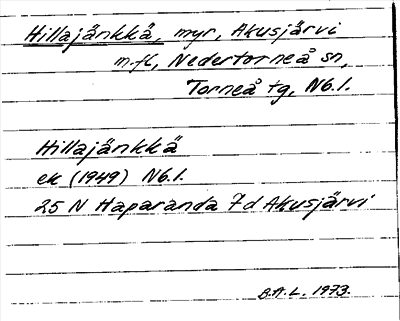 Hillajänkkä, myr, Akusjärvi
m.fl, Nedertorneå sn,
Torneå tg, Nb.l.
Hillajänkkä
ek (1949) Nb.l.
25 N Haparanda 7d Akusjärvi
B.A.L. 1973.